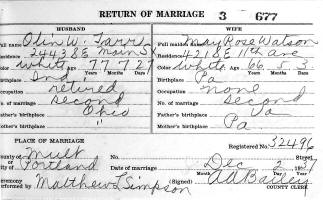 RETURN OF MARRIAGE 3 677
HUSBAND
Full name Olin W. Tarr
Residence 2443 8 E Main St
Color white Age 77 Years 7 Months 27 Days
Birthplace Ind
Occupation retired
No. of marriage second
Father's birthplace Ohio
Mother's birthplace "
WIFE
Full maiden name May Rose Watson
Residence 4218 E 11th Ave
Color white Age 66 Years 5 Months 3 Days
Birthplace Pa
Occupation none
No. of marriage second
Father's birthplace Va
Mother's birthplace Pa
PLACE OF MARRIAGE
Registered No. 32496
County of Mult Street,
City of Portland Date of marriage Dec 2
Ceremony performed by Matthew Simpson (Signed) A A Bailey
COUNTY CLERK